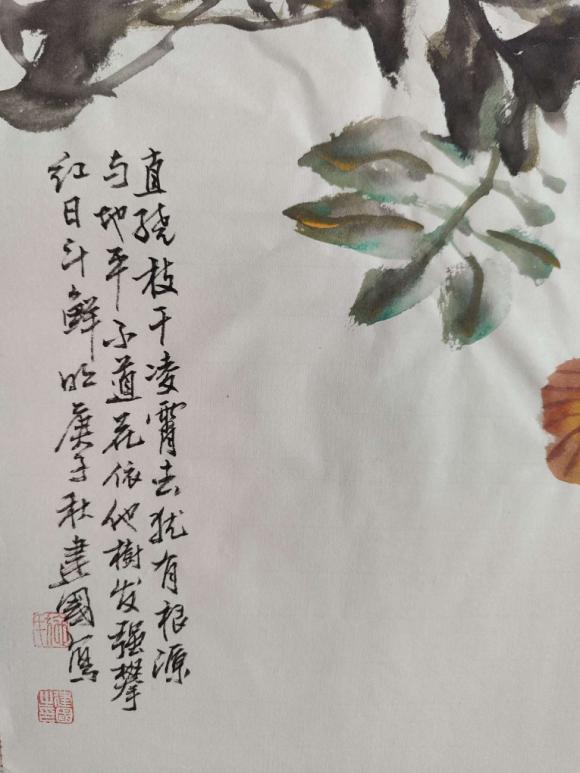 直绕枝干凌霄去犹有根源
与地平不道花依他樹发强攀
红日斗鮮明庚子秋建國寫